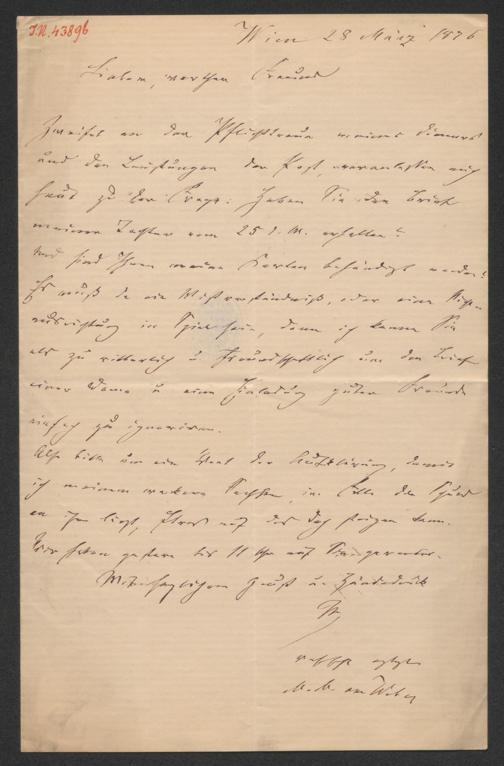 J.N. 43896
Wien 28 März 1876
Lieber, werther Freund
Zweifel an der Pflichttreue meines Dieners
und den Leistungen der Post, veranlassen mich
heut zu der Frage: Haben Sie den Brief
meiner Tochter vom 25 d. M. erhalten?
und sind Ihnen meine Karten behändigt worden?
Es muß da ein Mißverständniß, oder eine
in Spiel sein, denn ich kenne Sie
als zu ritterlich u. freundschaftlich um den Brief
einer Dame u. eine Einladung guter Freunde
einfach zu ignoriren.
Also bitte um ein Wort der Aufklärung, damit
ich meinem Sachsen, im Falle die Schuld
an ihm liegt, auf das Dach steigen kann.
Wir haben gestern bis 11 Uhr auf Sie gewartet.
Mit herzlichem Gruß u. Händedruck
Ihr
M. M. von Weber